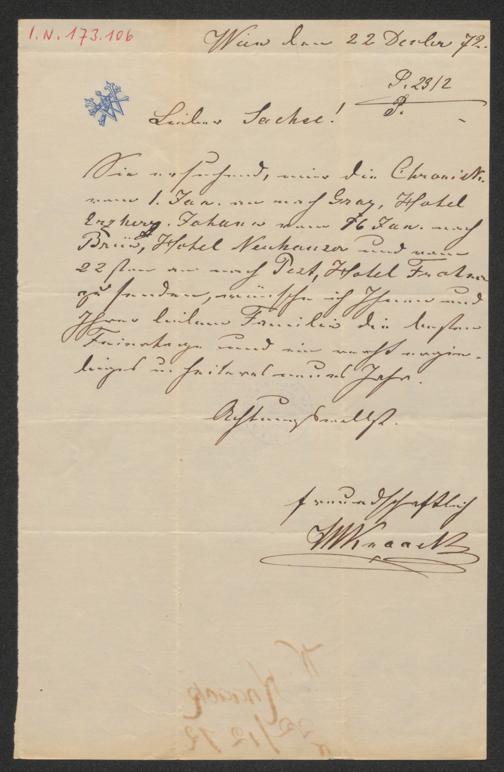 I.N. 173.106
Wien den 22 Decber 72.
P. 23/2
P.
Lieber Sachse!
Sie ersuchend, mir die Chronick
vom 1. Jan. an nach Graz, Hotel
Erzherz. Johann vom 16 Jan. nach
Brünn, Hotel Neuhauser und vom
22sten an nach Pest, Hotel Frohner
zu senden, wünsche ich Ihnen und
Ihrer lieben Familie die besten
Feiertage und ein recht
u. heiteres neues Jahr.
Achtungsvollst.
freundschaftlich
WKnaack
W
Knaack
22/12 72